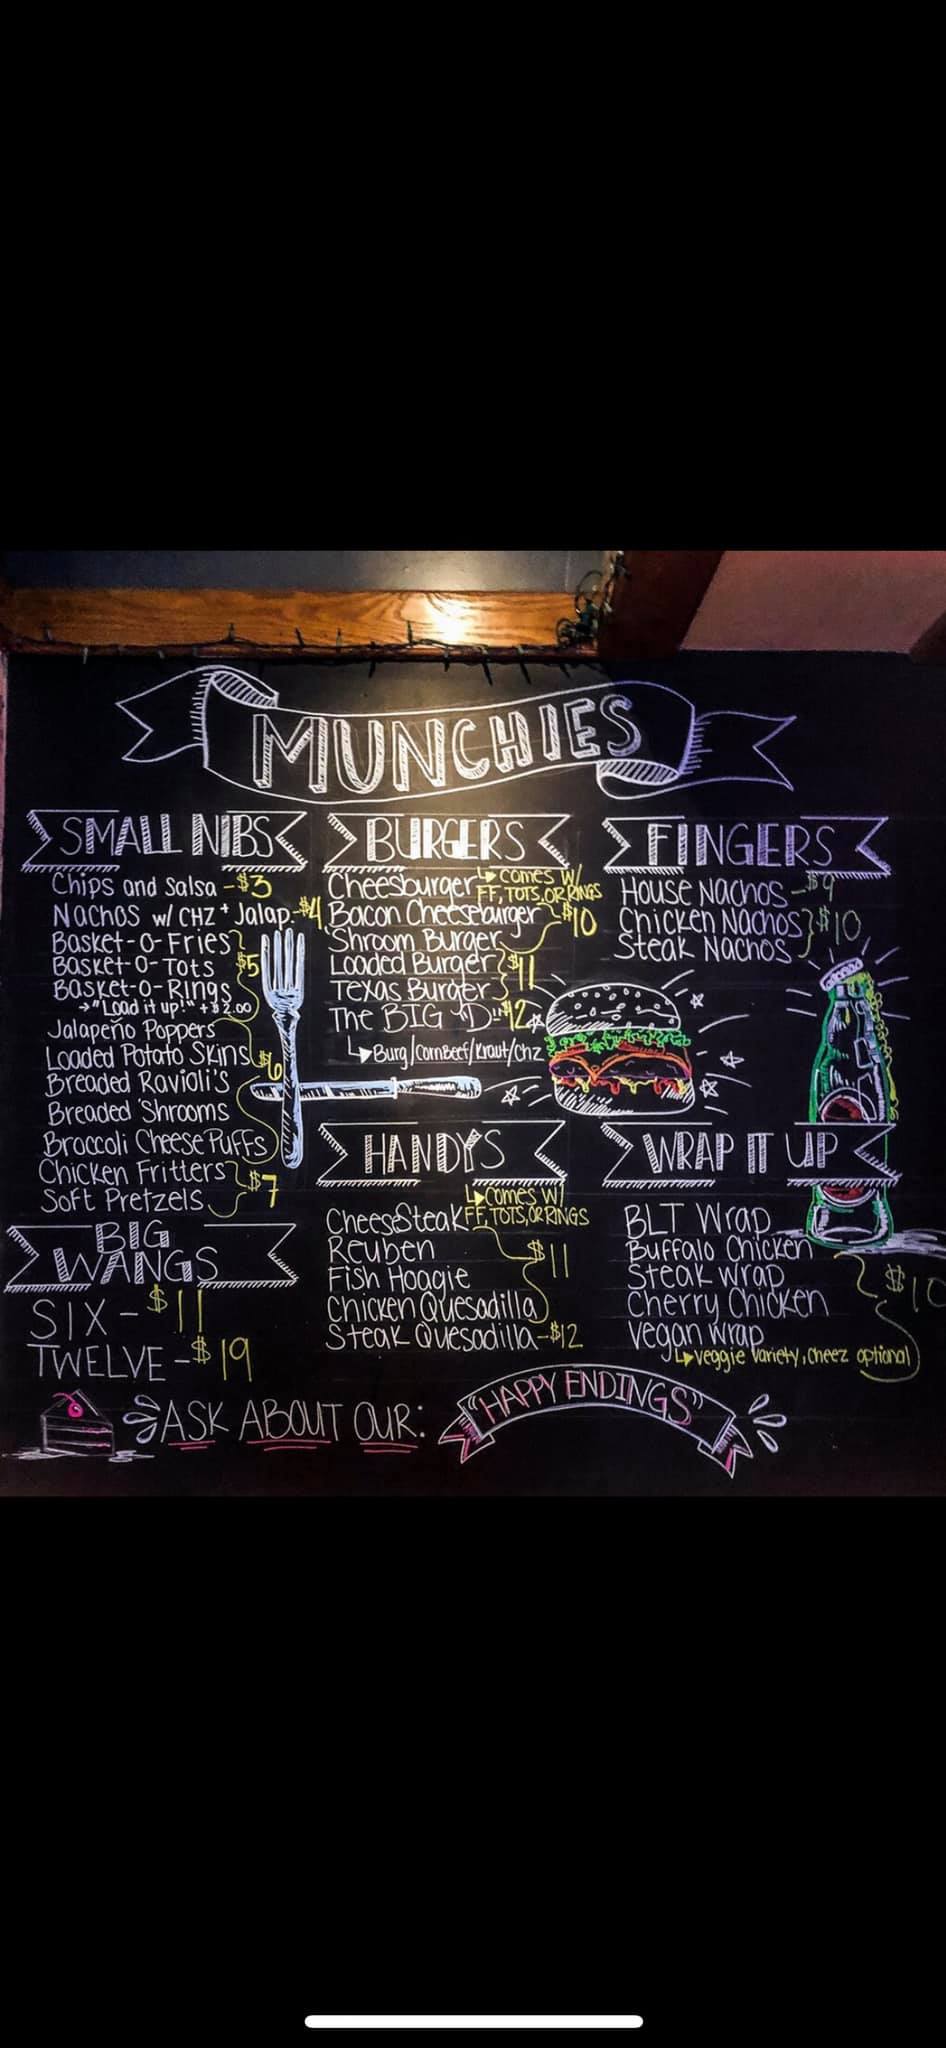 MUNCHIES
SMALL NIBS
Chips and Salsa - $3
Nachos w/ CHZ + Jalap. - $4
Basket-O-Fries
Basket-O-Tots $5
Basket-O-Rings
→ "Load it up!" + $2.00
Jalapeño Poppers
Loaded Potato Skins $6
Breaded Ravioli's
Breaded 'Shrooms
Broccoli Cheese Puffs
Chicken Fritters
$7
Soft Pretzels
BIG
WANGS
SIX - $11
TWELVE - $19
BURGERS
↳ comes w/
FF, TOTS, OR RINGS
Cheesburger
Bacon Cheeseburger $10
Shroom Burger
Loaded Burger $11
Texas Burger
The BIG "D" - $12
↳ Burg/CornBeef/Kraut/Chz
HANDYS
↳ comes w/
FF, TOTS, OR RINGS
CheeseSteak
Reuben $11
Fish Hoagie
Chicken Quesadilla
Steak Quesadilla - $12
FINGERS
House Nachos - $9
Chicken Nachos $10
Steak Nachos
WRAP IT UP
BLT Wrap
Buffalo Chicken
Steak Wrap $10
Cherry Chicken
Vegan Wrap
↳ veggie variety, cheez optional
ASK ABOUT OUR:
"HAPPY ENDINGS"